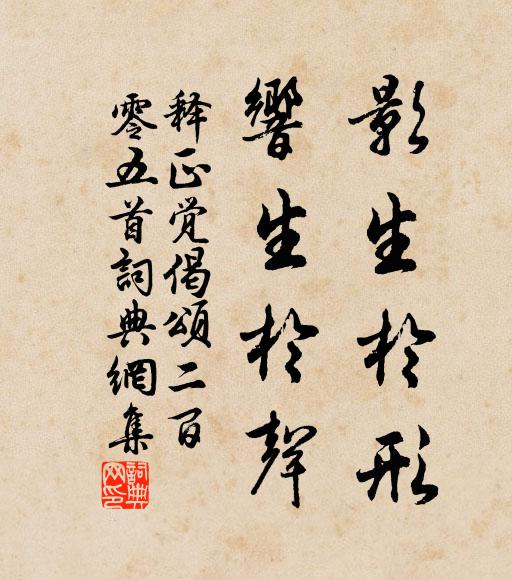 影生於形
響生於聲
释正觉偈頌二百
零五首詞典網集
詞典网印